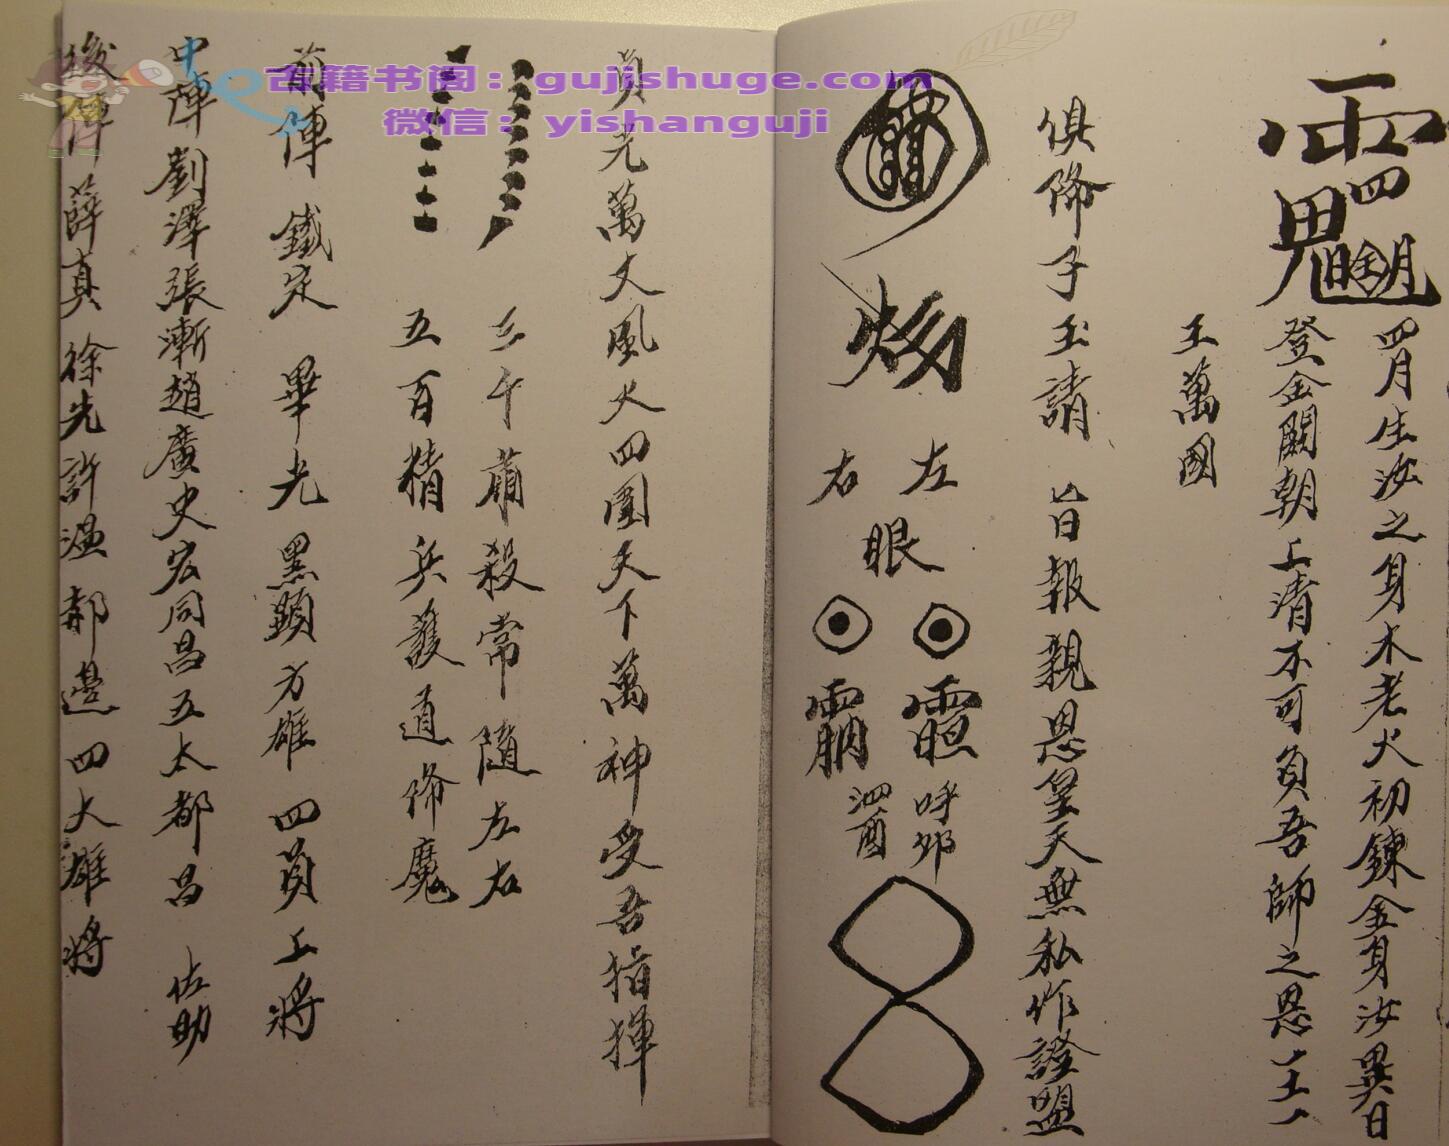 古籍书阁：gujishuge.com
微信：yishanguji
四月生汝之身木老火初鍊金身汝異日
登金闕朝上清不可負吾師之恩
王萬國
俱俻子玉請旨報親恩皇天無私作證盟
左
右
眼
呼
員光萬丈風火四圍天下萬神受吾指揮
三千肅殺常隨左右
五百精兵護道俻魔
前陣 鐵定 畢光 黑顕 方雄 四員上將
中陣劉澤張漸趙廣史宏同昌五太都昌 佐助
後陣薛真徐先許温郝邊四大雄將